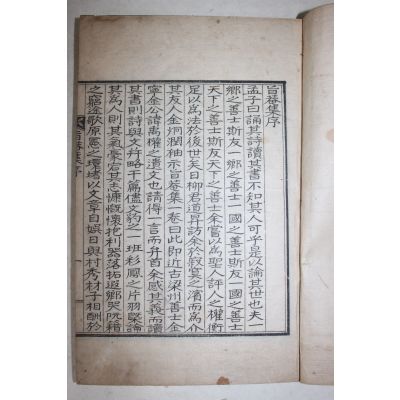 旨菴集序
孟子曰誦其詩讀其書不知其人可乎是以論其世也夫一
鄕之善士斯友一鄕之善士一國之善士斯友一國之善士
天下之善士斯友天下之善士余嘗以爲聖人評人之權衡
足以爲法於後世矣日柳君道昇訪余於寂寞之濱而爲介
其友人金炯潤袖示旨菴集一卷曰此卽近古梁州善士金
寧金公諱禹權之遺文也請得一言而弁首余感其義而讀
其書則詩與文幷略千篇儘文豹之一班彩鳳之片羽槩論
其爲人則其氣豪宕其志慷慨懷抱利器落拓遐鄕哭阮籍
之窮途歌原憲之環堵以文章自娛日與村秀材子相酬於
旨菴集 序